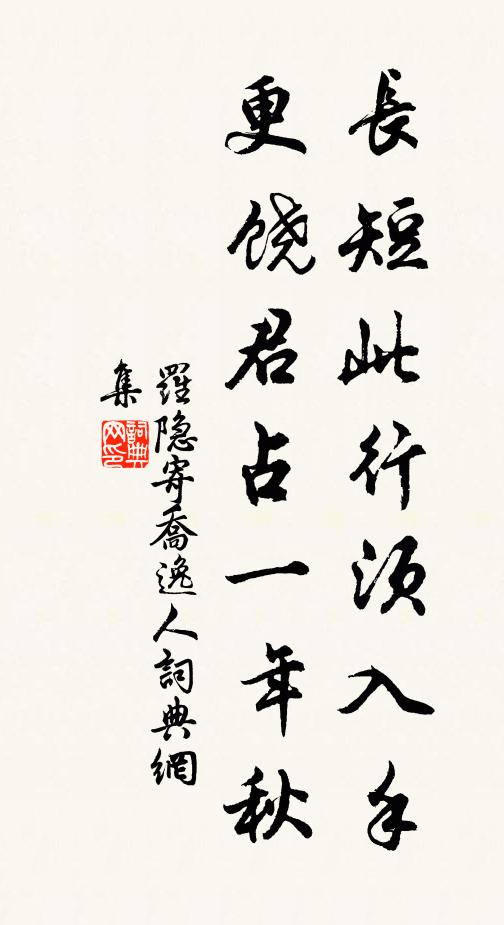 長短此行須入手
更饒君占一年秋
羅隐寄喬逸人詞典網
集
詞典
网印